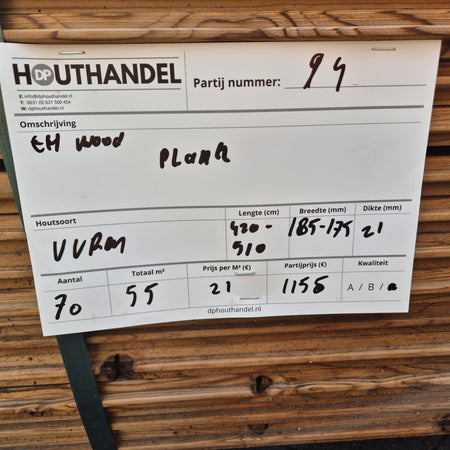 HOUTHANDEL
DP
E: info@dphouthandel.nl
T: 0031 (0) 621 500 454
W: dphouthandel.nl
Partij nummer: 94
Omschrijving
EH wood Plank
Houtsoort
VVRen
Lengte (cm)
420-
510
Breedte (mm)
185-175
Dikte (mm)
21
Aantal
70
Totaal m²
55
Prijs per M² (€)
21
Partijprijs (€)
1155
Kwaliteit
A / B /
dphouthandel.nl